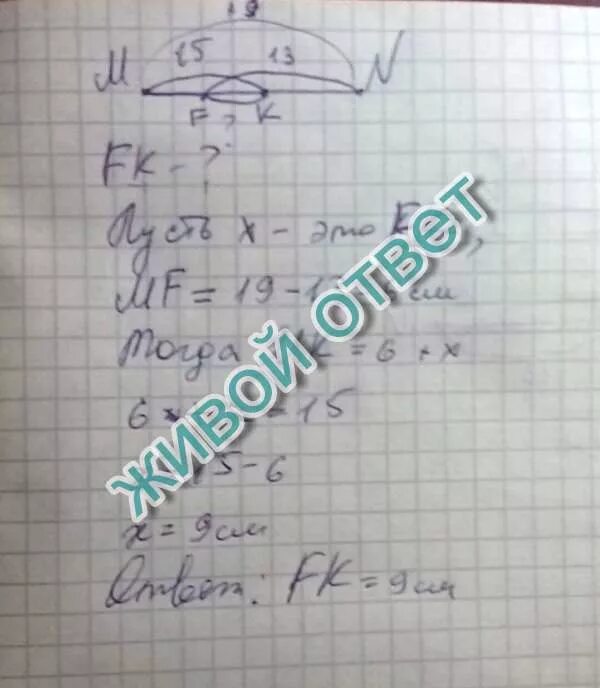 19
M 15 13 N
F ? K
FK - ?
Пусть x - это
MF = 19 - см
Тогда = 6 + x
6 = 15
5 - 6
x = 9 см
Ответ: FK = 9 см
ЖИВОЙ ОТВЕТ